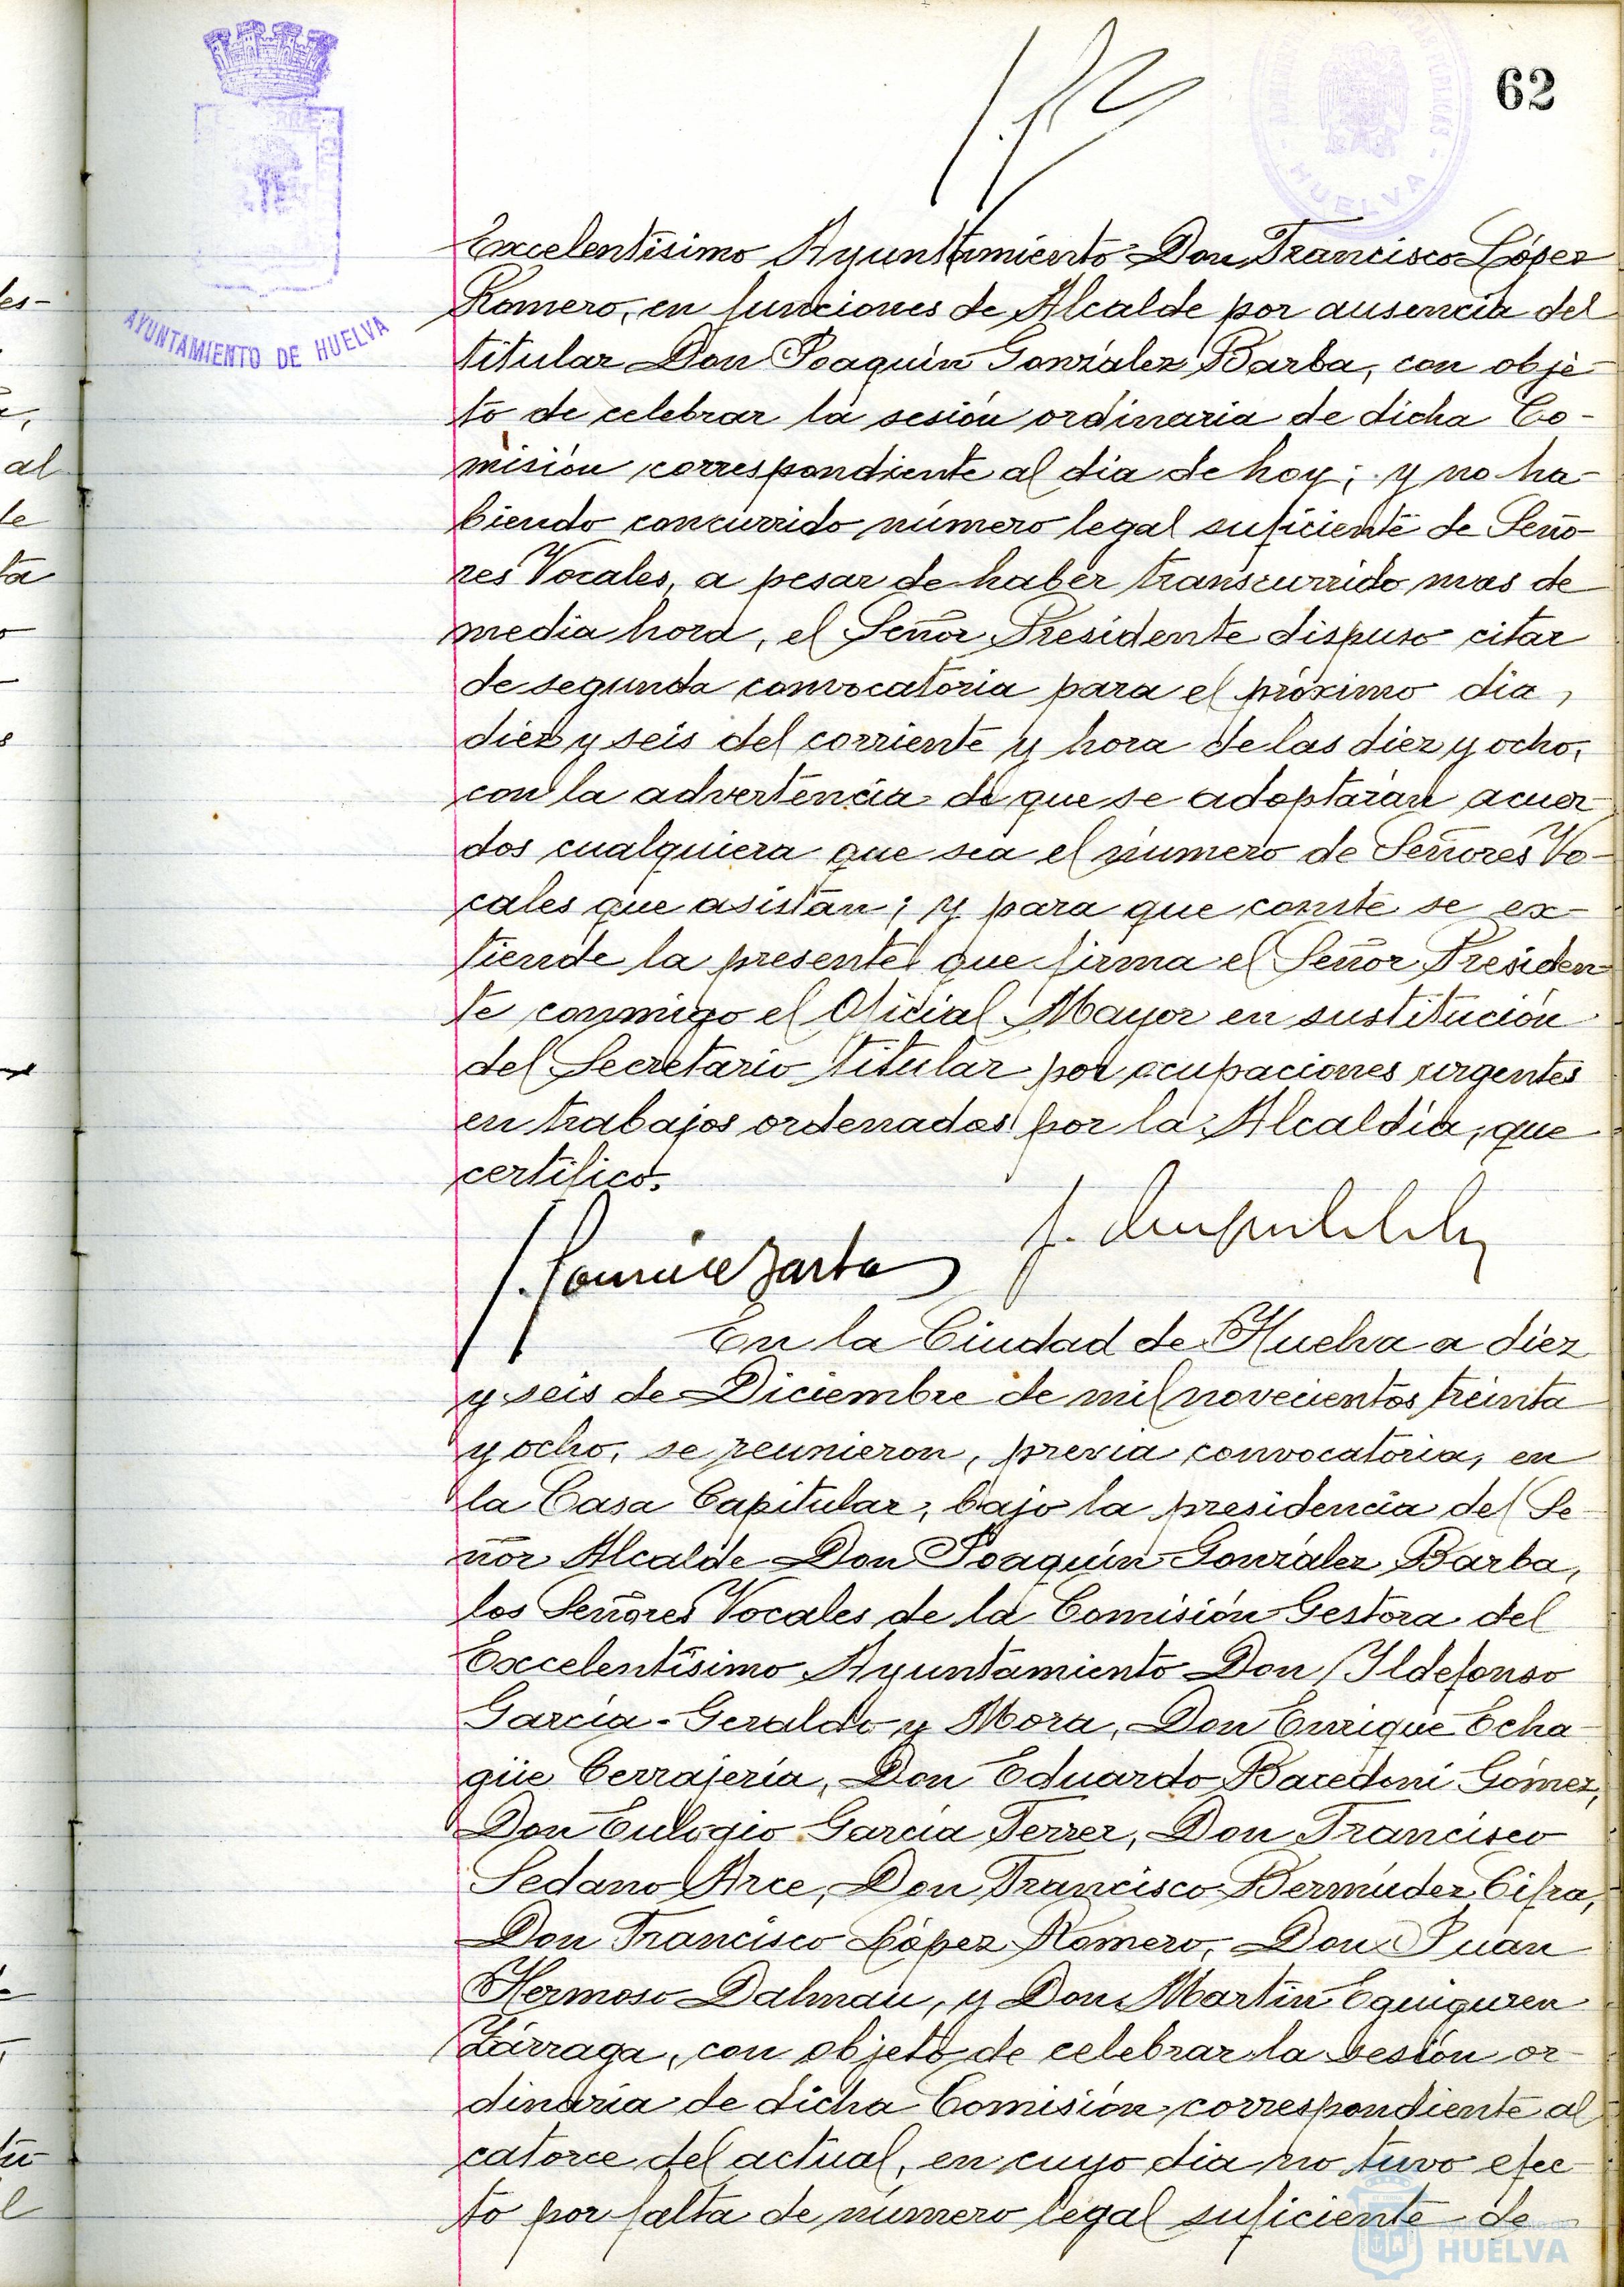 62
AYUNTAMIENTO DE HUELVA
HUELVA
Excelentísimo Ayuntamiento Don Francisco López
Romero, en funciones de Alcalde por ausencia del
titular Don Joaquín González Barba, con obje-
to de celebrar la sesión ordinaria de dicha Co-
misión correspondiente al dia de hoy; y no ha-
biendo concurrido número legal suficiente de Seño-
res Vocales, a pesar de haber transcurrido mas de
media hora, el Señor Presidente dispuso citar
de segunda convocatoria para el próximo dia,
diez y seis del corriente y hora de las diez y ocho,
con la advertencia de que se adoptarán acuer-
dos cualquiera que sea el número de Señores Vo-
cales que asistan; y para que conste se ex-
tiende la presente que firma el Señor Presiden-
te conmigo el Oficial Mayor en sustitución
del Secretario titular por ocupaciones urgentes
en trabajos ordenados por la Alcaldía, que
certifico.
En la Ciudad de Huelva a diez
y seis de Diciembre de mil novecientos treinta
y ocho, se reunieron, previa convocatoria, en
la Casa Capitular, bajo la presidencia del Se-
ñor Alcalde Don Joaquín González Barba,
los Señores Vocales de la Comisión Gestora del
Excelentísimo Ayuntamiento Don Ildefonso
García-Geraldo y Mora, Don Enrique Echa-
güe Cerrajería, Don Eduardo Bacedoni Gómez,
Don Eulogio García Ferrer, Don Francisco
Sedano Arce, Don Francisco Bermúdez Cifra,
Don Francisco López Romero, Don Juan
Hermoso Dalmau, y Don Martín Eguiguren
Zárraga, con objeto de celebrar la sesión or-
dinaria de dicha Comisión, correspondiente al
catorce del actual, en cuyo dia no tuvo efec-
to por falta de número legal suficiente de
HUELVA